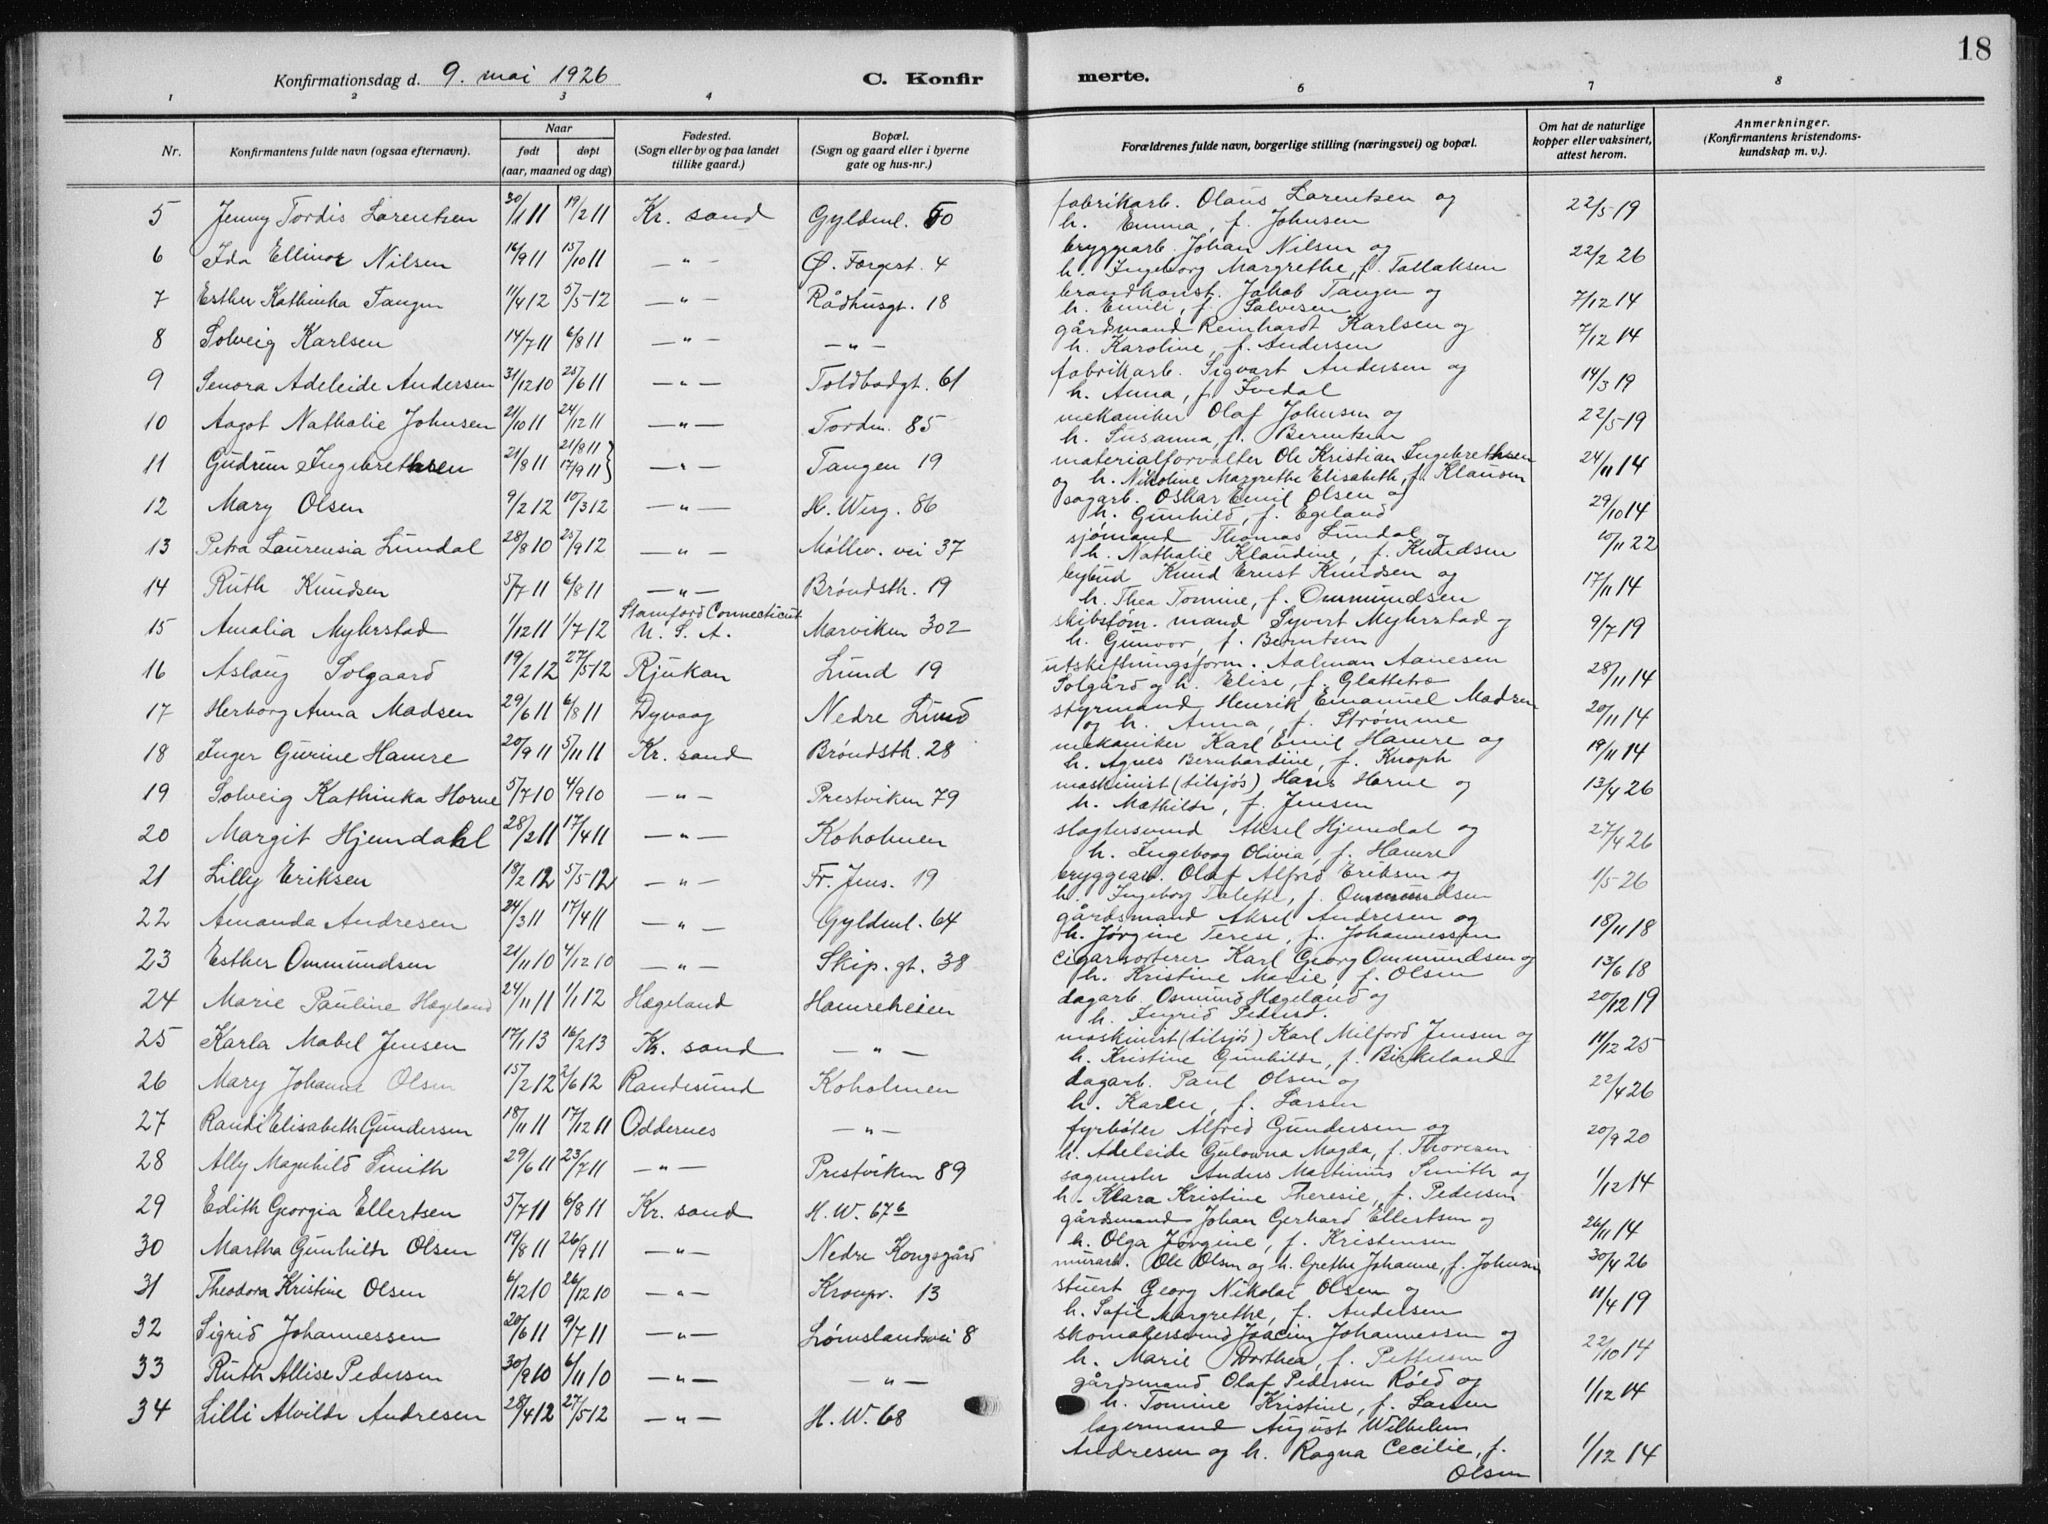 18
Konfirmationsdag d. 9. mai 1926 C. Konfirmerte.
1 2 3 4 6 7 8
Nr. Konfirmantens fulde navn (ogsaa efternavn). Naar født døpt (aar, maaned og dag) Fødested. (Sogn eller by og paa landet tillike gaard.) Bopæl. (Sogn og gaard eller i byerne gate og hus-nr.) Forældrenes fulde navn, borgerlige stilling (næringsvei) og bopæl. Om hat de naturlige kopper eller vaksinert, attest herom. Anmerkninger. (Konfirmantens kristendomskundskap m. v.).
5 Jenny Tordis Lorentsen 30/1 11 19/2 11 Kr. sand Gyldenl. 50 fabrikarb. Olaus Lorentsen og 22/5-19
h. Emma, f. Johnsen
6 Ida Ellinor Nilsen 16/9 11 15/10 11 — " — Ø. Færgest. 4 bryggearb. Johan Nilsen og 22/2 26
h. Ingeborg Margrethe, f. Tallaksen
7 Esther Kathinka Tangen 11/4 12 5/5-12 — " — Rådhusgt. 18 brandkonst. Jakob Tangen og 7/12 14
h. Emili, f. Salvesen
8 Solveig Karlsen 14/7 11 6/8 11 — " — — " — gårdsmand Reinhardt Karlsen og 7/12 14
h. Karoline, f. Andersen
9 Senora Adeleide Andersen 31/12 10 25/6 11 — " — Toldbodgt. 61 fabrikarb. Sigvart Andersen og 14/3 19
h. Anna, f. Ivedal
10 Aagot Nathalie Johnsen 21/10 11 24/12 11 — " — Tordn. 85 mekaniker Olaf Johnsen og 22/5-19
h. Susanna, f. Berentsen
11 Gudrun Ingebrethsen 21/8 11 21/8 11 17/9 11 } — " — Tangen 19 materialforvalter Ole Kristian Ingebrethsen 24/11 14
og h. Nikoline Margrethe Elisabeth, f. Klausen
12 Mary Olsen 9/2 12 10/3 12 — " — H. Werg. 86 sagarb. Oskar Emil Olsen og 29/10 14
h. Gunhild, f. Egeland
13 Petra Laurensia Lundal 28/8 10 25/9 12 — " — Møllev. vei 37 sjømand Thomas Lundal og 10/11 22
h. Nathalie Klaudine, f. Knudsen
14 Ruth Knudsen 5/7 11 6/8 11 — " — Brøndsth. 19 bybud Knud Ernst Knudsen og 17/11 14
h. Thea Tomine, f. Ommundsen
15 Amalia Myhrstad 1/12 11 1/7 12 Stamford Connecticut U. S. A. Marviken 302 skibstøm. mand Syvert Myhrstad og 9/7 19
h. Gunvor, f. Berntsen
16 Aslaug Solgaard 19/2 12 27/5 12 Rjukan Lund 19 utskiftningsform. Aalman Aanesen 28/11 14
Solgård og h. Elise, f. Glattetre
17 Herborg Anna Madsen 29/6 11 6/8 11 Dyvaag Nedre Lund styrmand Henrik Emanuel Madsen 20/11 14
og h. Anna, f. Strømme
18 Inger Gurine Hamre 20/9 11 5/11 11 Kr. sand Brøndsth. 28 mekaniker Karl Emil Hamre og 19/11 14
h. Agnes Bernhardine, f. Knoph
19 Solveig Kathinka Horne 5/7 10 4/9 10 — " — Prestviken 79 maskinist (tilsjøs) Hans Horne og 13/4 26
h. Mathilde, f. Jensen
20 Margit Hjemdahl 28/2 11 17/4 11 — " — Koholmen slagtersvend Aksel Hjemdal og 27/4 26
h. Ingeborg Olivia, f. Hamre
21 Lilly Eriksen 18/2 12 5/5-12 — " — Fr. Jens. 19 bryggearb. Olaf Alfred Eriksen og 1/5-26
h. Ingeborg Talette, f. Ommundsen
22 Amanda Andresen 24/3 11 17/4 11 — " — Gyldenl. 64 gårdsmand Aksel Andresen og 18/11 18
h. Jørgine Terese, f. Johannessen
23 Esther Ommundsen 21/11 10 4/12 10 — " — Skip. gt. 38 cigarsorterer Karl Georg Ommundsen og 13/6 18
h. Kristine Marie, f. Olsen
24 Marie Pauline Hægeland 24/11 11 1/1 12 Hægeland Hamreheien dagarb. Osmund Hægeland og 20/12 19
h. Ingrid Pedersd.
25 Karla Mabel Jensen 17/1 13 16/2 13 Kr. sand — " — maskinist (tilsjøs) Karl Milford Jensen og 11/12 25
h. Kristine Gunhilde, f. Birkeland
26 Mary Johanne Olsen 15/2 12 2/6 12 Randesund Koholmen dagarb. Paul Olsen og 22/4 26
h. Karen, f. Larsen
27 Randi Elisabeth Gundersen 18/11 11 17/12 11 Oddernes — " — fyrbøter Alfred Gundersen og 20/9 20
h. Adeleide Gulowna Magda, f. Thoresen
28 Ally Magnhild Smith 29/6 11 23/7 11 — " — Prestviken 89 sagmester Anders Martinius Smith og 1/12 14
h. Klara Kristine Theresie, f. Pedersen
29 Edith Georgia Ellertsen 5/7 11 6/8 11 Kr. sand H. W. 67 b gårdsmand Johan Gerhard Ellertsen og 26/11 14
h. Olga Jørgine, f. Kristensen
30 Martha Gunhilde Olsen 19/8 11 26/9 11 — " — Nedre Kongsgård murarb. Ole Olsen og h. Grethe Johanne, f. Johnsen 30/4 26
31 Theodora Kristine Olsen 6/12 10 26/12 10 — " — Kronpr. 13 stuert Georg Nikolai Olsen og 11/4 19
h. Sofie Margrethe, f. Andersen
32 Sigrid Johannessen 20/6 11 9/7 11 — " — Lømslandsvei 8 skomakersvend Joacim Johannessen og 22/10 14
h. Marie Dorthea, f. Pettersen
33 Ruth Allise Pedersen 30/9 10 6/11 10 — " — — " — gårdsmand Olaf Pedersen Røed og 1/12 14
h. Tomine Kristine, f. Larsen
34 Lilli Alvilde Andresen 28/4 12 27/5-12 — " — H. W. 68 lagermand August Wilhelm
Andresen og h. Ragna Cecilie, f. 1/12 14
Olsen